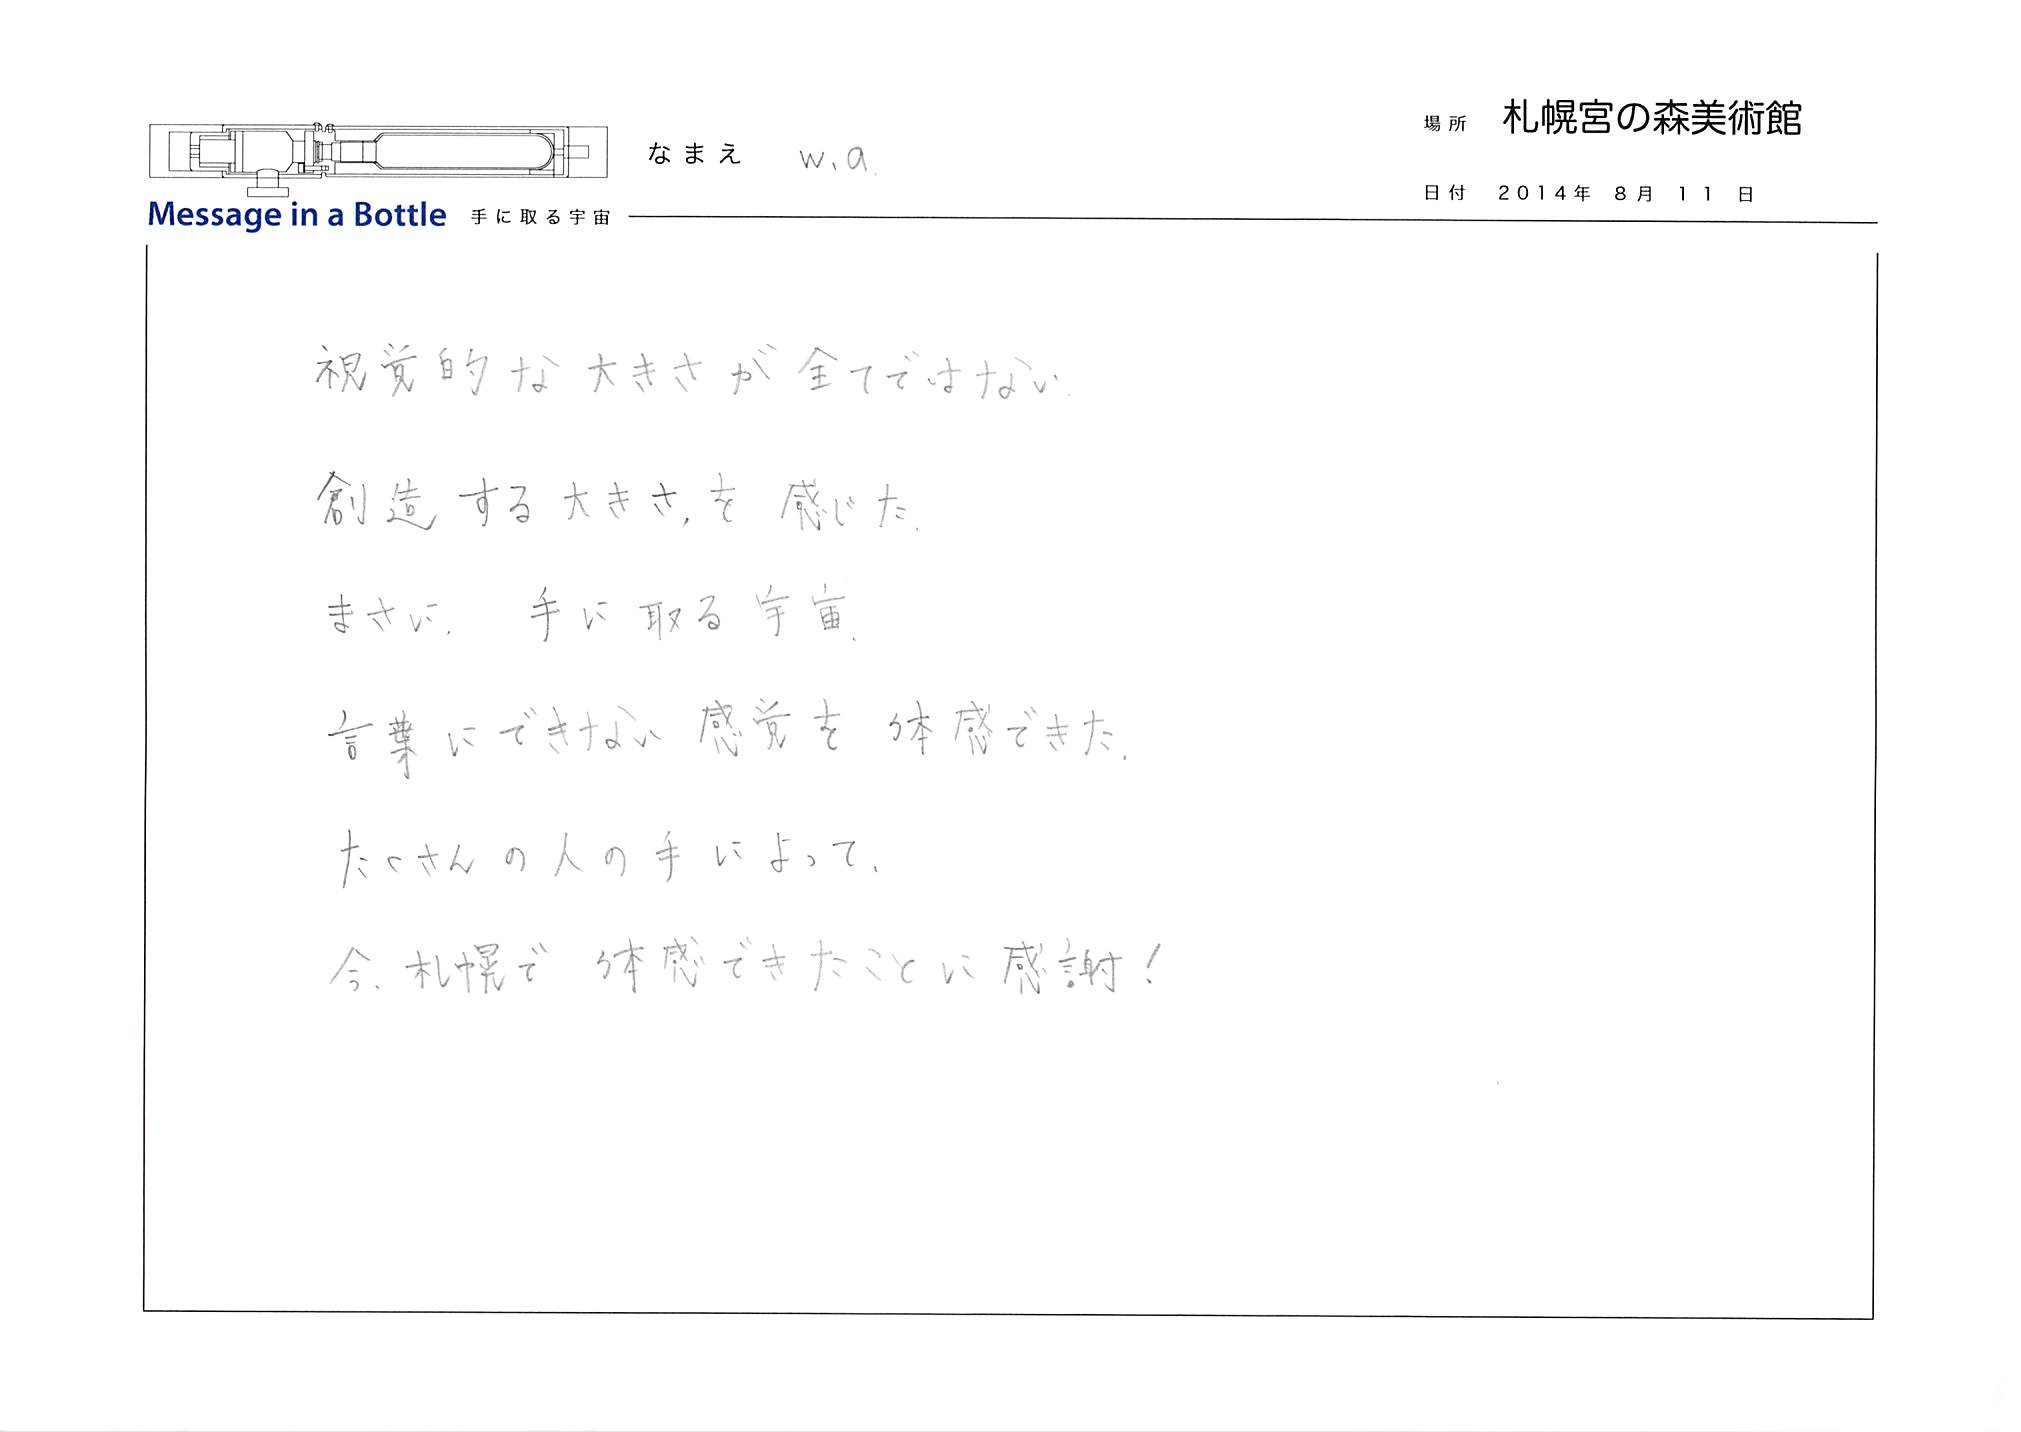 場所 札幌宮の森美術館
なまえ w.a.
日付 2014年 8月 11日
Message in a Bottle 手に取る宇宙
視覚的な大きさが全てではない.
創造する大きさ,を感じた.
まさに. 手に取る宇宙.
言葉にできない感覚を体感できた.
たくさんの人の手によって、
今、札幌で体感できたことに感謝!